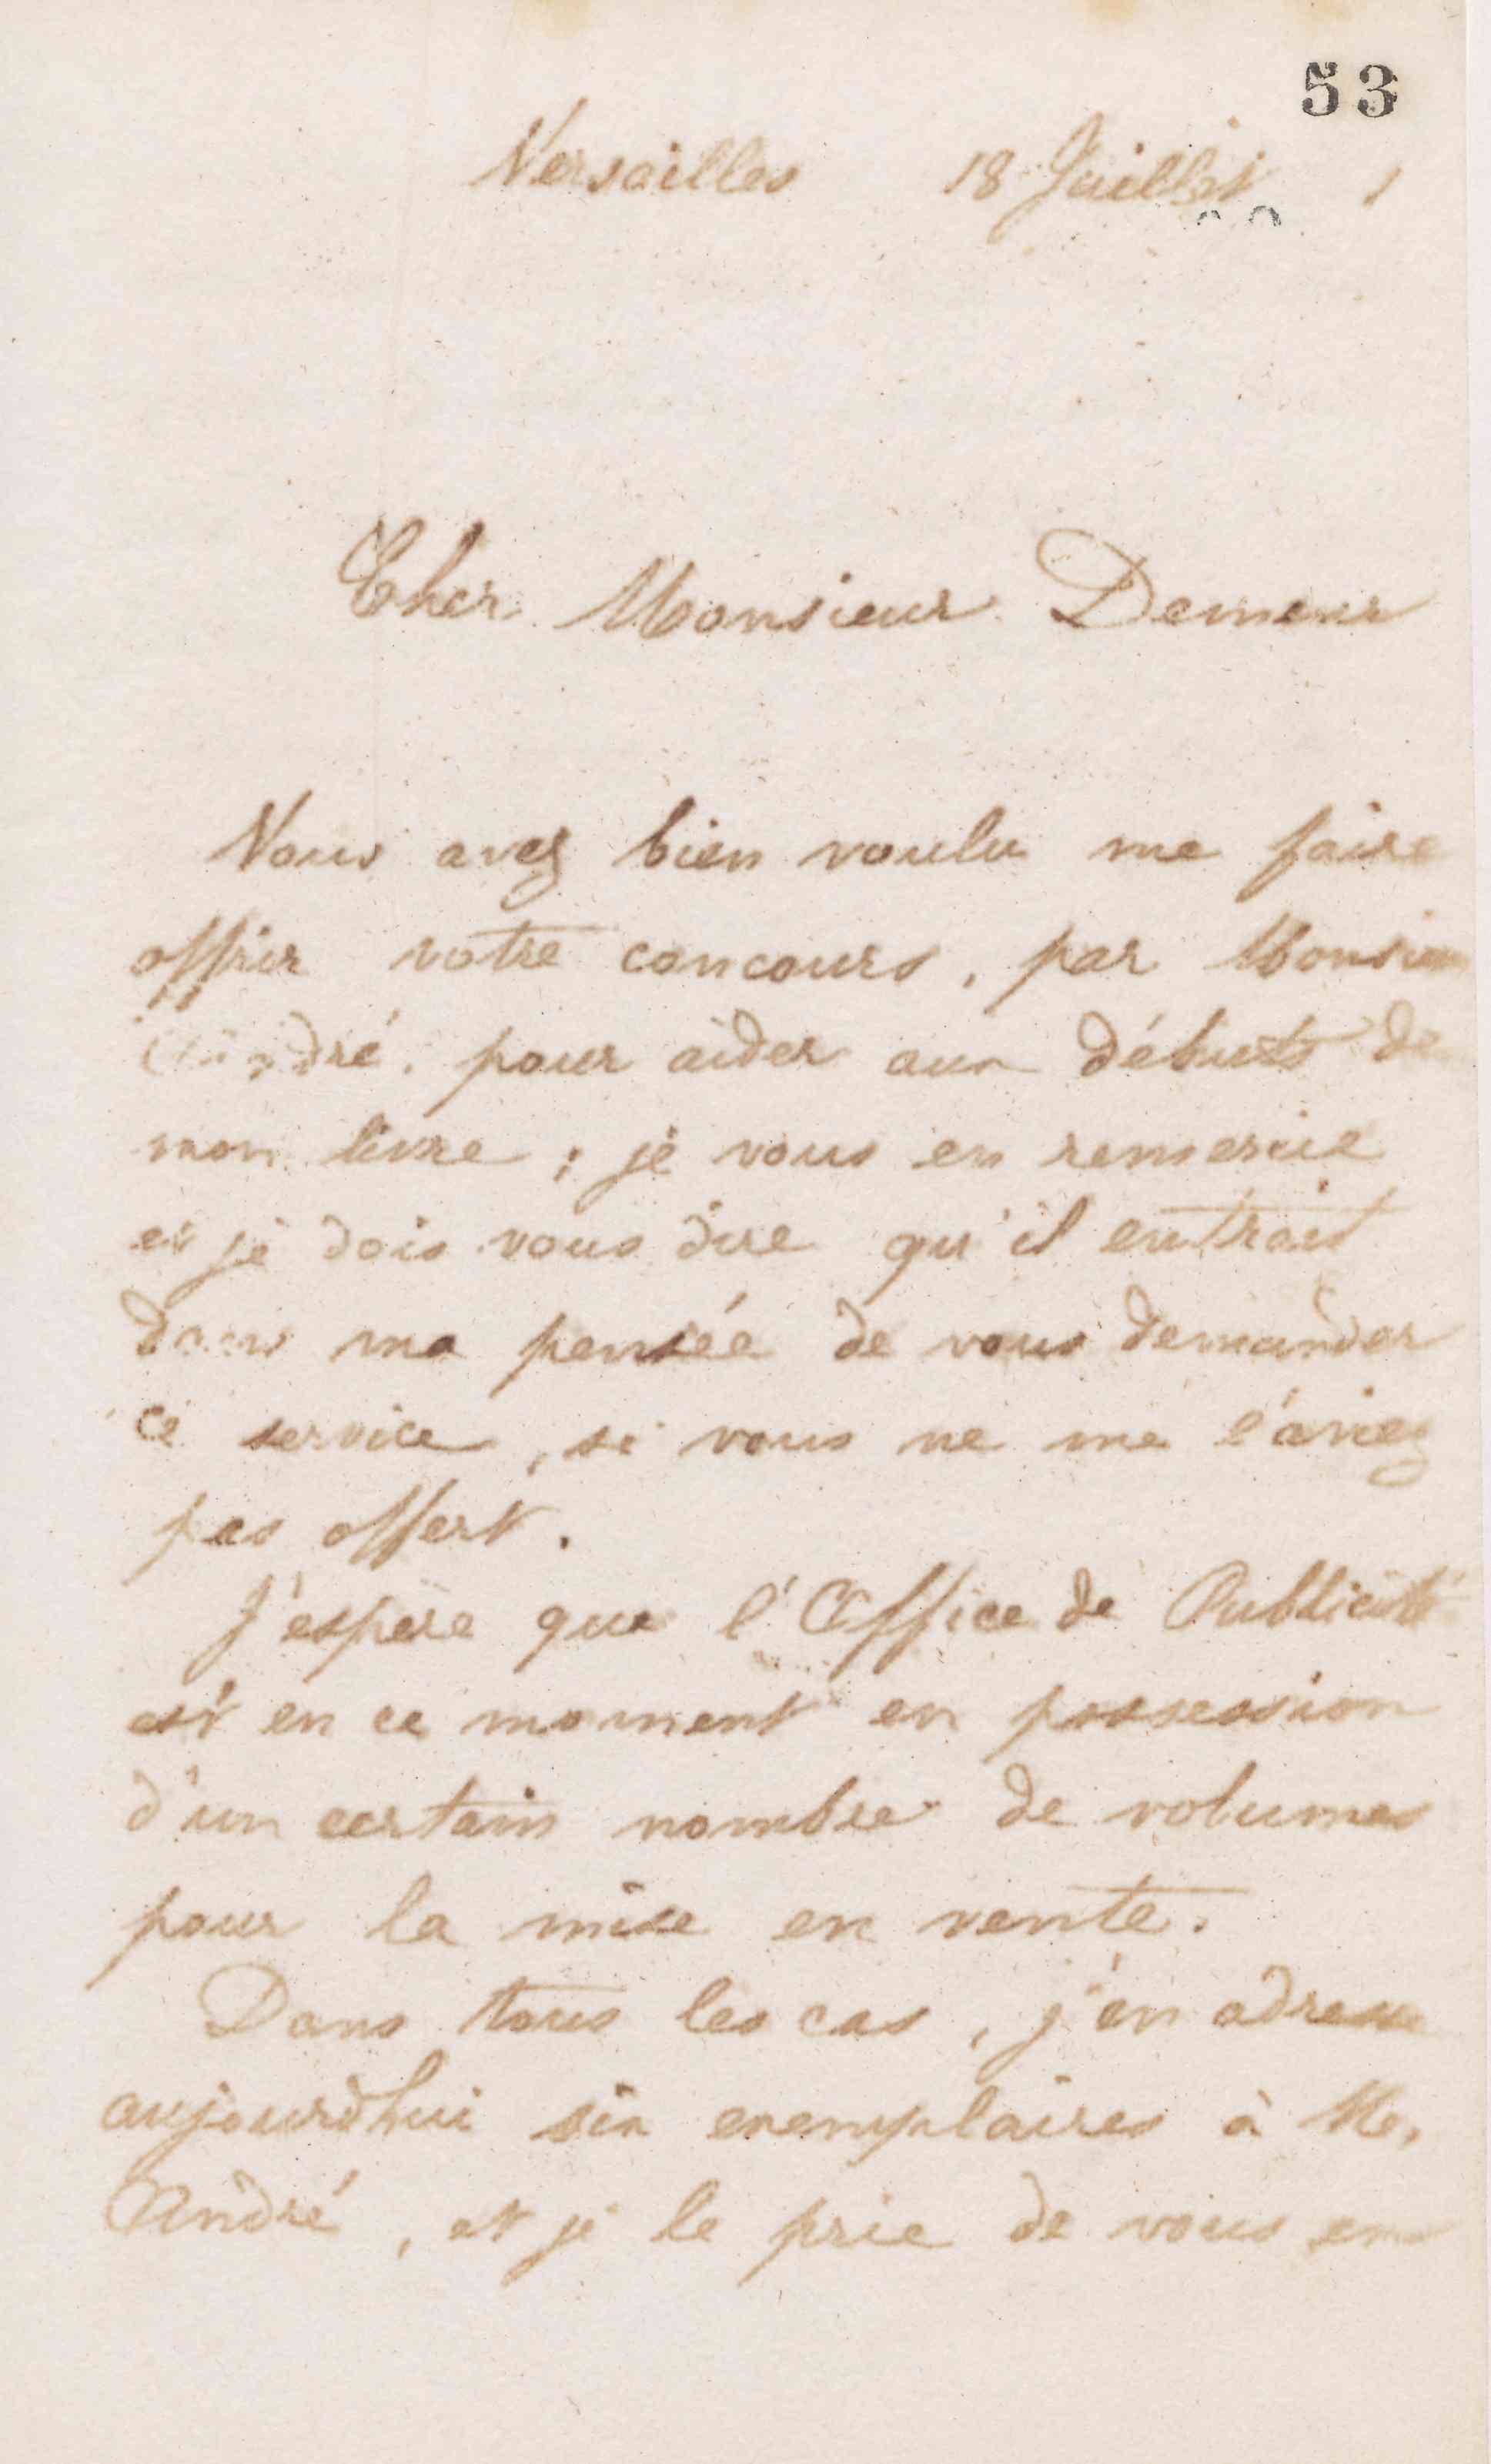 53
Versailles 18 Juillet
Cher Monsieur Demeur
Vous avez bien voulu me faire
offrir votre concours, par Monsieur
André, pour aider aux débuts de
mon livre ; je vous en remercie
et je dois vous dire qu'il entrait
dans ma pensée de vous demander
ce service, si vous ne me l'aviez
pas offert.
J'espère que l'Office de Publicité
est en ce moment en possession
d'un certain nombre de volumes
pour la mise en vente.
Dans tous les cas, j'en adresse
aujourd'hui six exemplaires à M.
André, et je le prie de vous en